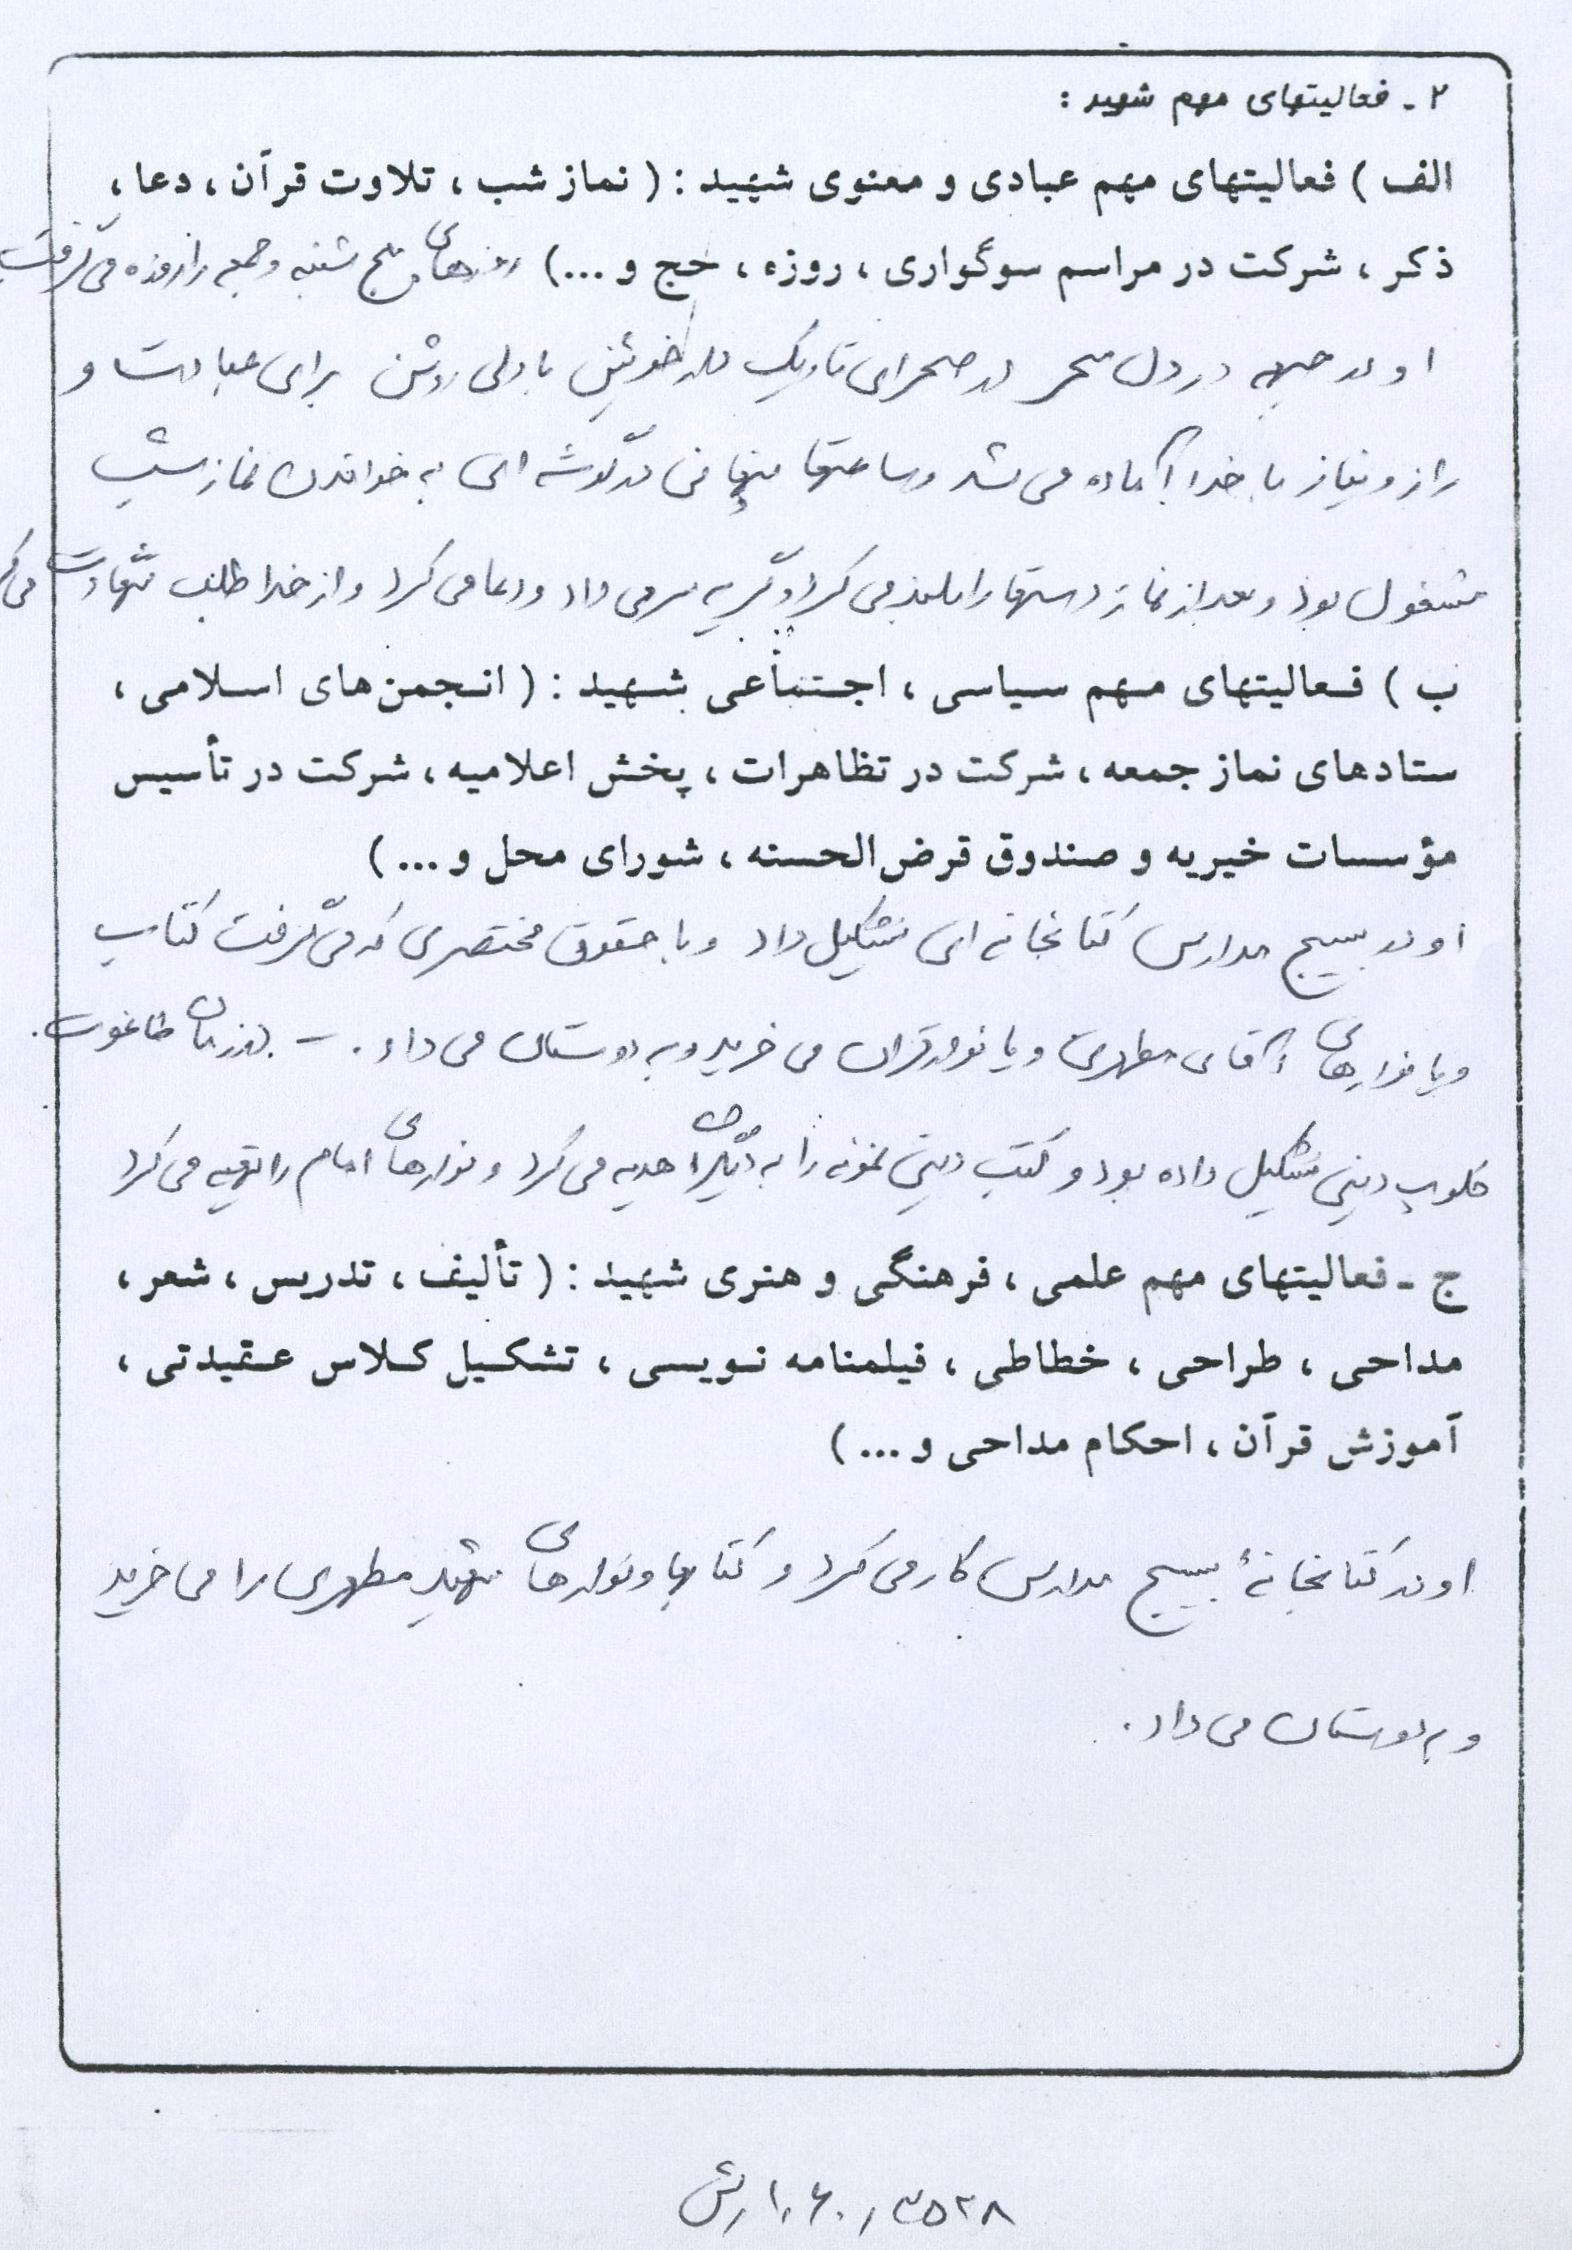 ۲ - فعالیتهای مهم شهید :
الف ) فعالیتهای مهم عبادی و معنوی شهید : ( نماز شب ، تلاوت قرآن ، دعا ،
ذکر ، شرکت در مراسم سوگواری ، روزه ، حج و ...) روزهای پنج شنبه و جمعه را روزه می گرفت
او در جبهه در دل سحر در صحرای تاریک خوئین با دلی روشن برای عبادت و
راز و نیاز با خدا آماده می شد و ساعتها پنهانی در گوشه ای به خواندن نماز شب
مشغول بود و بعد از نماز دستها را بلند می کرد و گریه سر می داد و دعا می کرد و از خدا طلب شهادت می
ب ) فعالیتهای مهم سیاسی ، اجتماعی شهید : ( انجمن‌های اسلامی ،
ستادهای نماز جمعه ، شرکت در تظاهرات ، پخش اعلامیه ، شرکت در تأسیس
مؤسسات خیریه و صندوق قرض‌الحسنه ، شورای محل و ... )
او در بسیج مدارس کتابخانه ای تشکیل داد و با حقوق مختصری که می گرفت کتاب
و یا نوارهای آقای مطهری و یا نوار قران می خرید و به دوستان می داد . - در زمان طاغوت .
کلوب دینی تشکیل داده بود و کتب دینی نمونه را به دیگران هدیه می کرد و نوارهای امام را تهیه می کرد
ج - فعالیتهای مهم علمی ، فرهنگی و هنری شهید : ( تألیف ، تدریس ، شعر ،
مداحی ، طراحی ، خطاطی ، فیلمنامه نویسی ، تشکیل کلاس عقیدتی ،
آموزش قرآن ، احکام مداحی و ... )
او در کتابخانهٔ بسیج مدارس کار می کرد و کتابها و نوارهای شهید مطهری را می خرید
و به دوستان می داد .